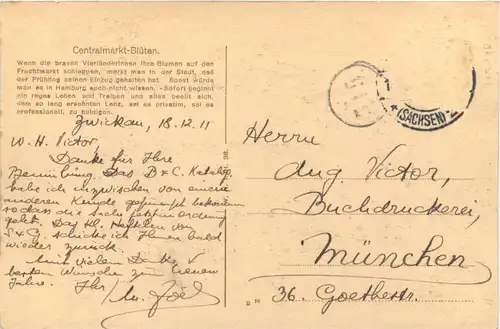 Centralmarkt-Blüten.
Wenn die braven Vierländerinnen ihre Blumen auf den
Fruchtmarkt schleppen, merkt man in der Stadt, daß
der Frühling seinen Einzug gehalten hat. Sonst würde
man es in Hamburg auch nicht wissen. - Sofort beginnt
ein reges Leben und Treiben und alles beeilt sich,
dem so lang ersehnten Lenz, sei es privatim, sei es
professionell, zu huldigen.
Zwickau, 18.12.11
W. H. Victor,
Danke für Ihre
Bemühung. Das B & C. Katalog
habe ich inzwischen von einem
anderen Kunde
so dass die Sache jetzt in Ordnung
geht. Das kl. von
S & G. schicke ich Ihnen bald
wieder zurück.
Mit vielem Danke &
besten Wünsche zum neuen
Jahre. Ihr
(SACHSEN)
Herrn
Aug. Victor,
Buchdruckerei,
München
36. Goethestr.